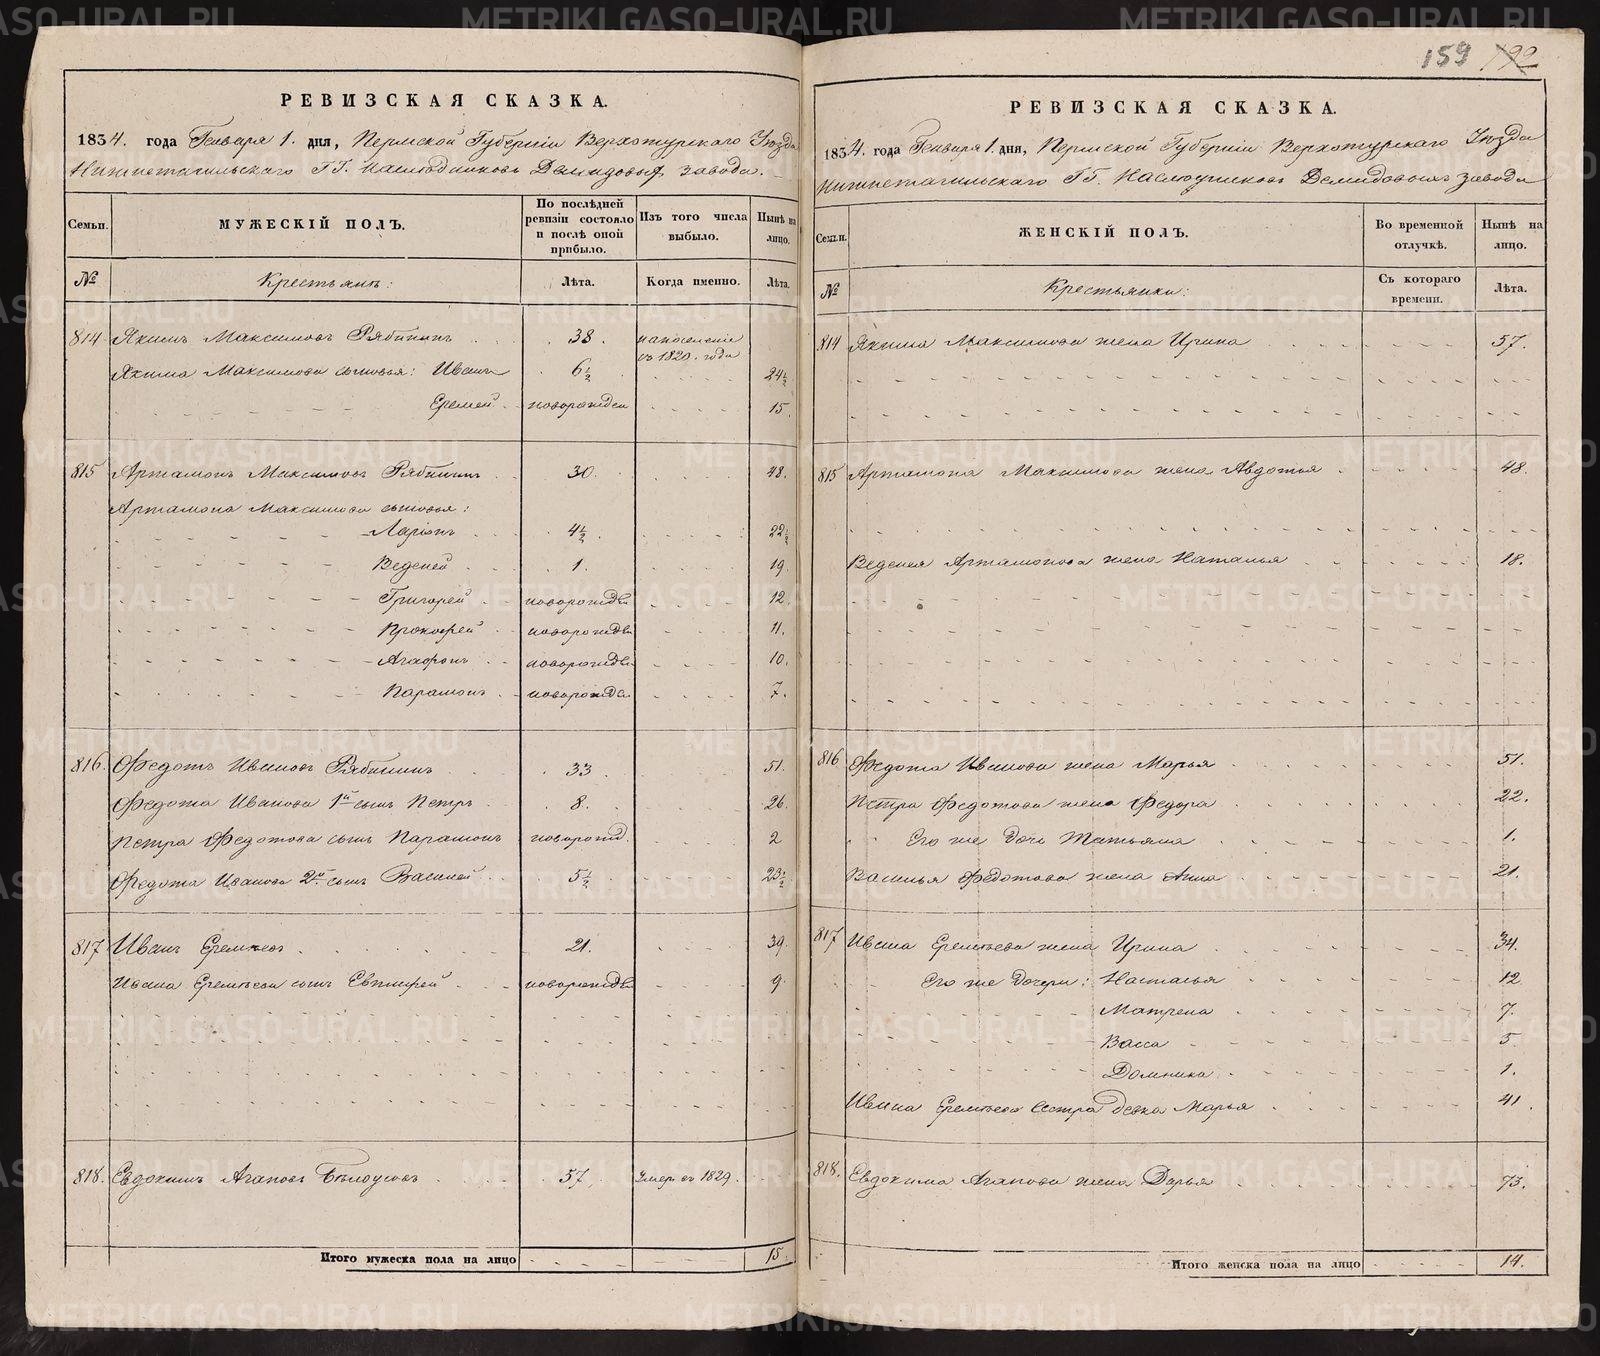 159 192
РЕВИЗСКАЯ СКАЗКА.
1834. года Генваря 1. дня, Пермской Губерніи Верхотурскаго Уѣзда
Нижнетагильскаго ГГ. Наслѣдниковъ Демидовыхъ завода.
Семьи.
МУЖЕСКІЙ ПОЛЪ.
По послѣдней ревизіи состояло и послѣ оной прибыло.
Изъ того числа выбыло.
Нынѣ на лицо.
№
Крестьянъ:
Лѣта.
Когда именно.
Лѣта.
814 Якимъ Максимовъ Рябининъ 38. на поселеніе съ 1820. года
Якима Максимова сыновья: Иванъ 6½ 24½
Еремей новорожден 15.
815 Артамонъ Максимовъ Рябининъ 30. 48.
Артамона Максимова сыновья:
Ларіонъ 4½ 22½
Веденей 1. 19.
Григорей новорожден 12.
Прокофей новорожден 11.
Агафонъ новорожден 10.
Парамонъ новорожде 7.
816. Федотъ Ивановъ Рябининъ 33 51.
Федота Иванова 1й сынъ Петръ 8. 26.
Петра Федотова сынъ Парамонъ новорожд. 2
Федота Иванова 2й сынъ Василей 5½ 23½
817 Иванъ Еремѣевъ 21. 39.
Ивана Еремѣева сынъ Евтифей новорожден 9.
818. Евдокимъ Агаповъ Бѣлоусовъ 57. Умеръ въ 1829.
Итого мужеска пола на лицо 15.
РЕВИЗСКАЯ СКАЗКА.
1834. года Генваря 1. дня, Пермской Губерніи Верхотурскаго Уѣзда
Нижнетагильскаго ГГ. Наслѣдниковъ Демидовыхъ завода
Семьи.
ЖЕНСКІЙ ПОЛЪ.
Во временной отлучкѣ.
Нынѣ на лицо.
№
Крестьянки:
Съ котораго времени.
Лѣта.
814 Якима Максимова жена Ирина 57.
815 Артамона Максимова жена Авдотья 48.
Веденея Артамонова жена Наталья 18.
816 Федота Иванова жена Марья 51.
Петра Федотова жена Федора 22.
Его же дочь Татьяна 1.
Василья Федотова жена Анна 21.
817 Ивана Еремѣева жена Ирина 34.
Его же дочери: Насталья 12
Матрена 7.
Васса 5
Домника 1.
Ивана Еремѣева сестра девка Марья 41.
818. Евдокима Агапова жена Дарья 73.
Итого женска пола на лицо 14.
METRIKI.GASO-URAL.RU